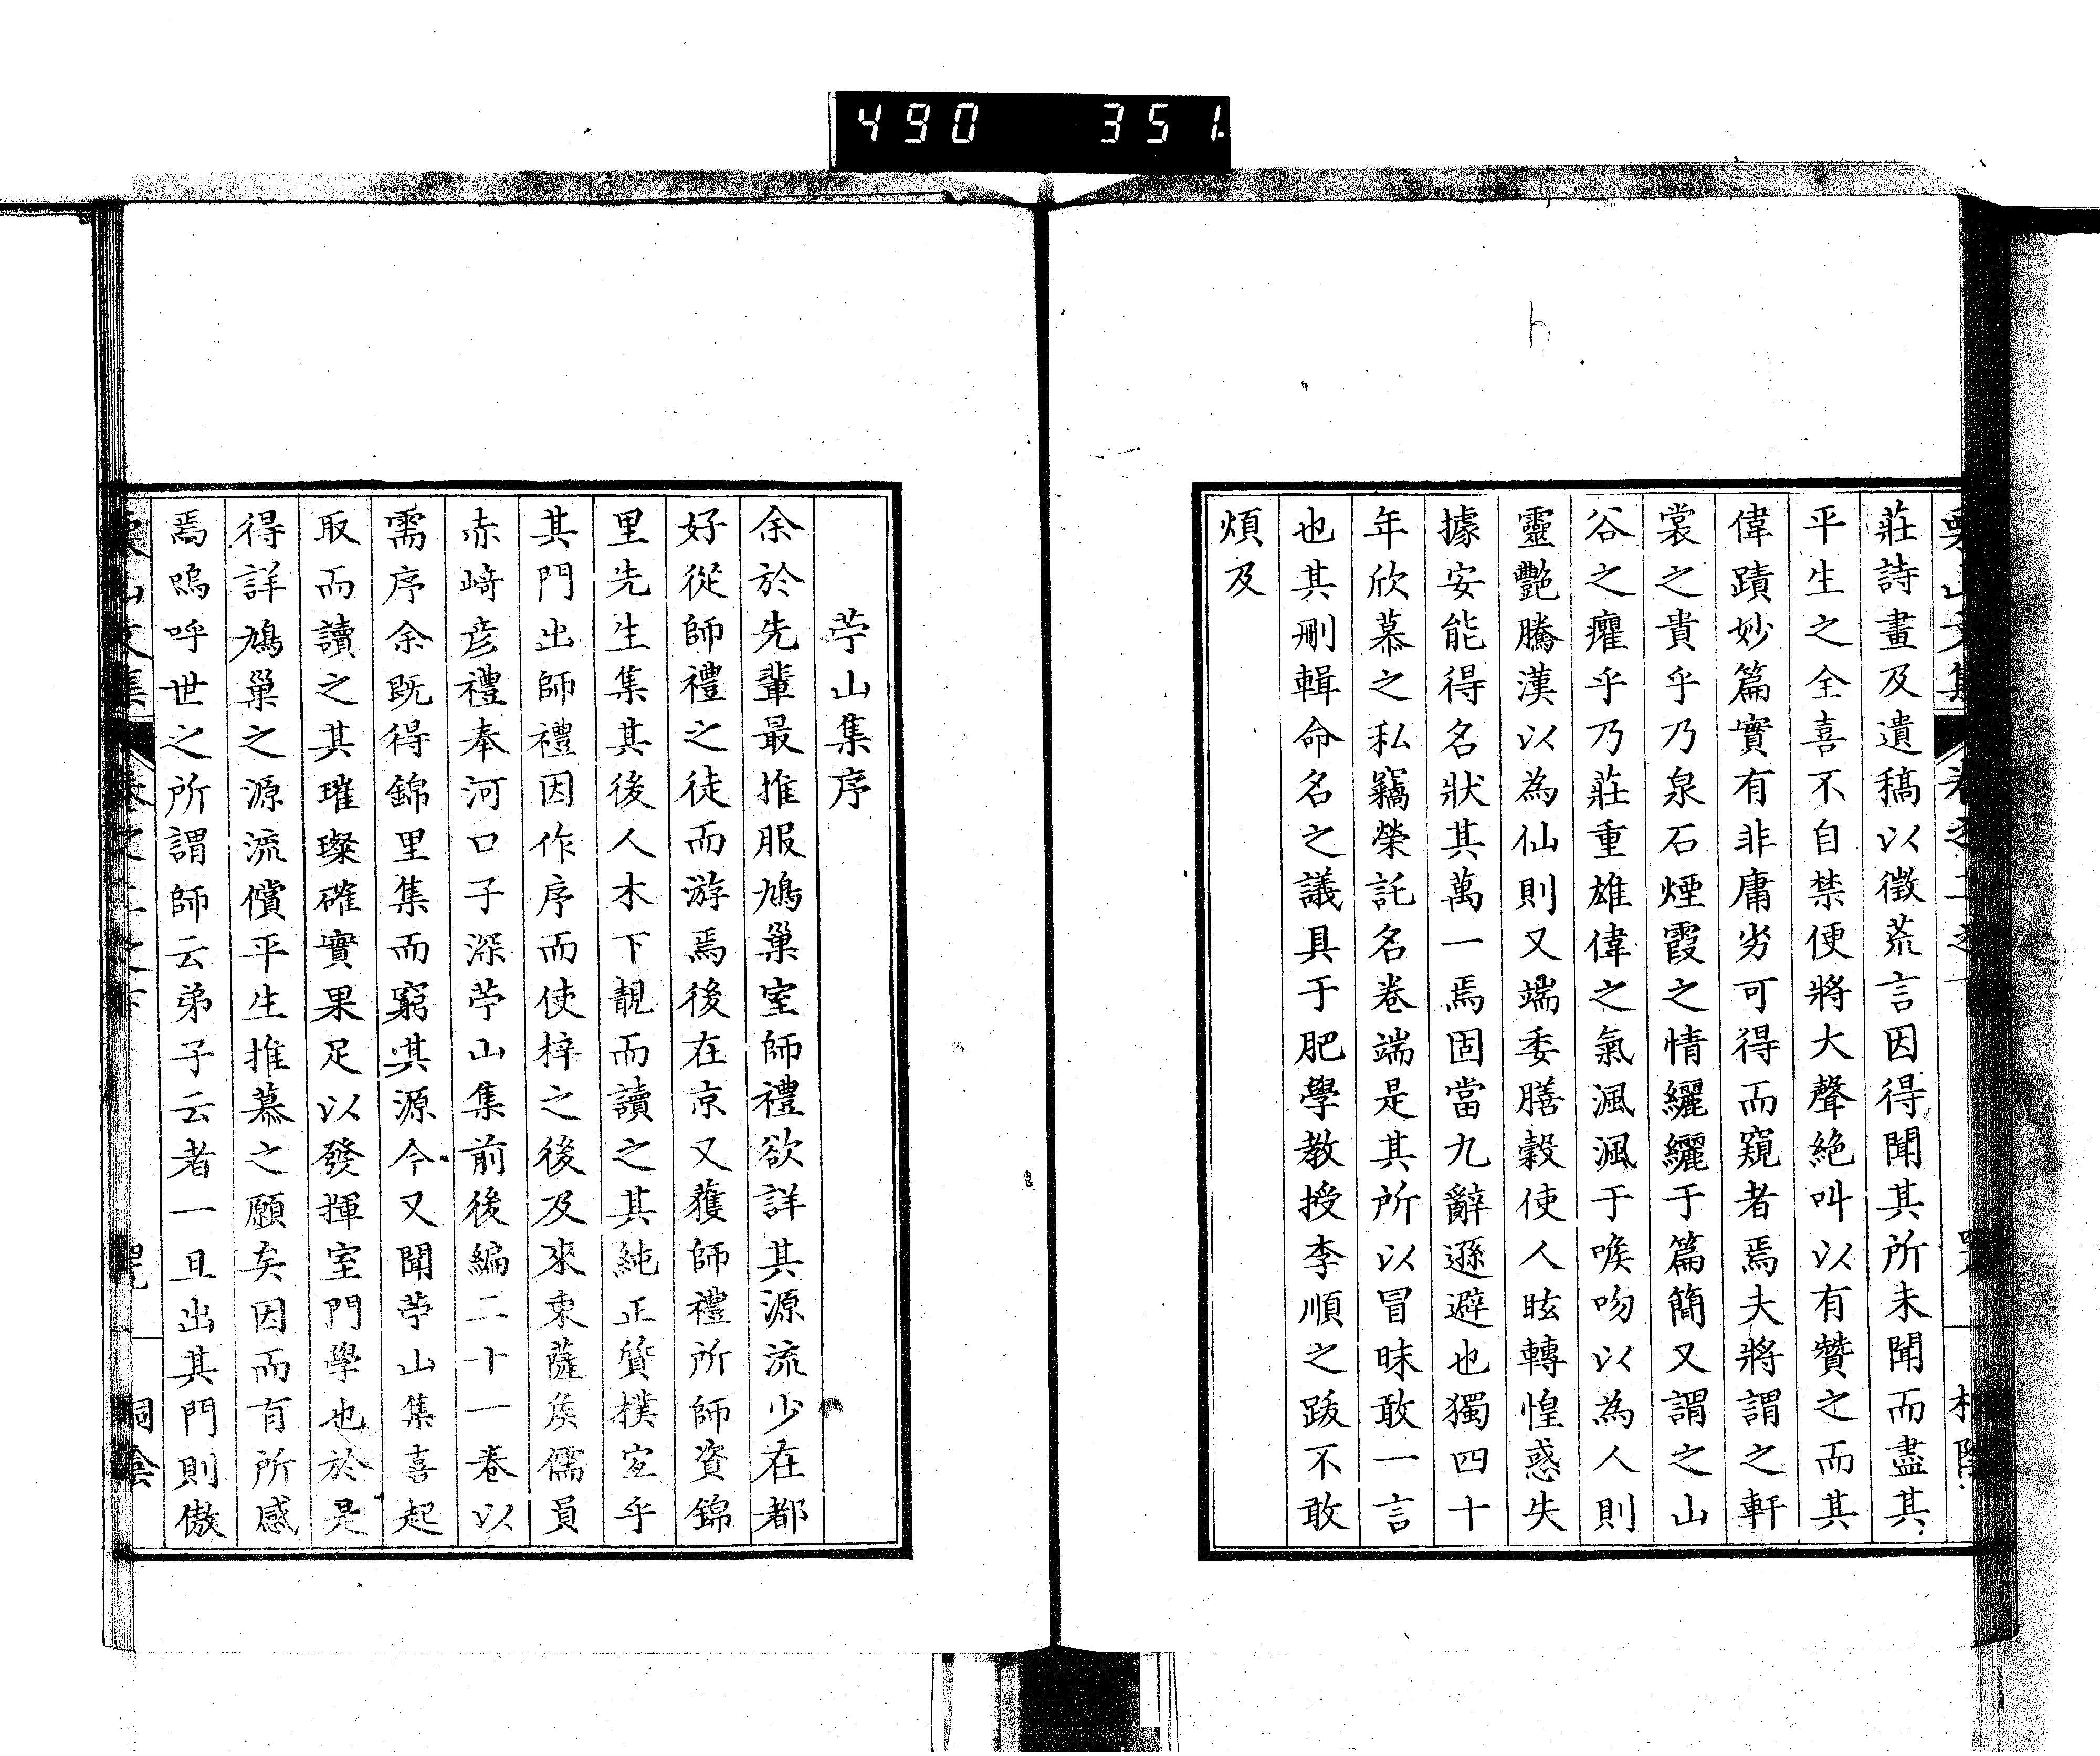 490 351
莊詩畫及遺稿以徵荒言因得聞其所未聞而盡其
平生之全喜不自禁便將大聲絶叫以有贊之而其
偉蹟妙篇實有非庸劣可得而窺者焉夫將謂之軒
裳之貴乎乃泉石煙霞之情纚纚于篇簡又謂之山
谷之癯乎乃莊重雄偉之氣渢渢于喉吻以為人則
靈艷騰漢以為仙則又端委膳穀使人眩轉惶惑失
據安能得名狀其萬一焉固當九辭遜避也獨四十
年欣慕之私竊榮託名卷端是其所以冒昧敢一言
也其刪輯命名之議具于肥學教授李順之跋不敢
煩及
苧山集序
余於先輩最推服鳩巢室師禮欲詳其源流少在都
好從師禮之徒而游焉後在京又獲師禮所師資錦
里先生集其後人木下靚而讀之其純正質樸宜乎
其門出師禮因作序而使梓之後及來東薩侯儒員
赤﨑彦禮奉河口子深苧山集前後編二十一卷以
需序余既得錦里集而窮其源今又聞苧山集喜起
取而讀之其璀璨確實果足以發揮室門學也於是
得詳鳩巢之源流償平生推慕之願矣因而有所感
焉嗚呼世之所謂師云弟子云者一旦出其門則傲
栗山文集 卷之二之下 桐陰